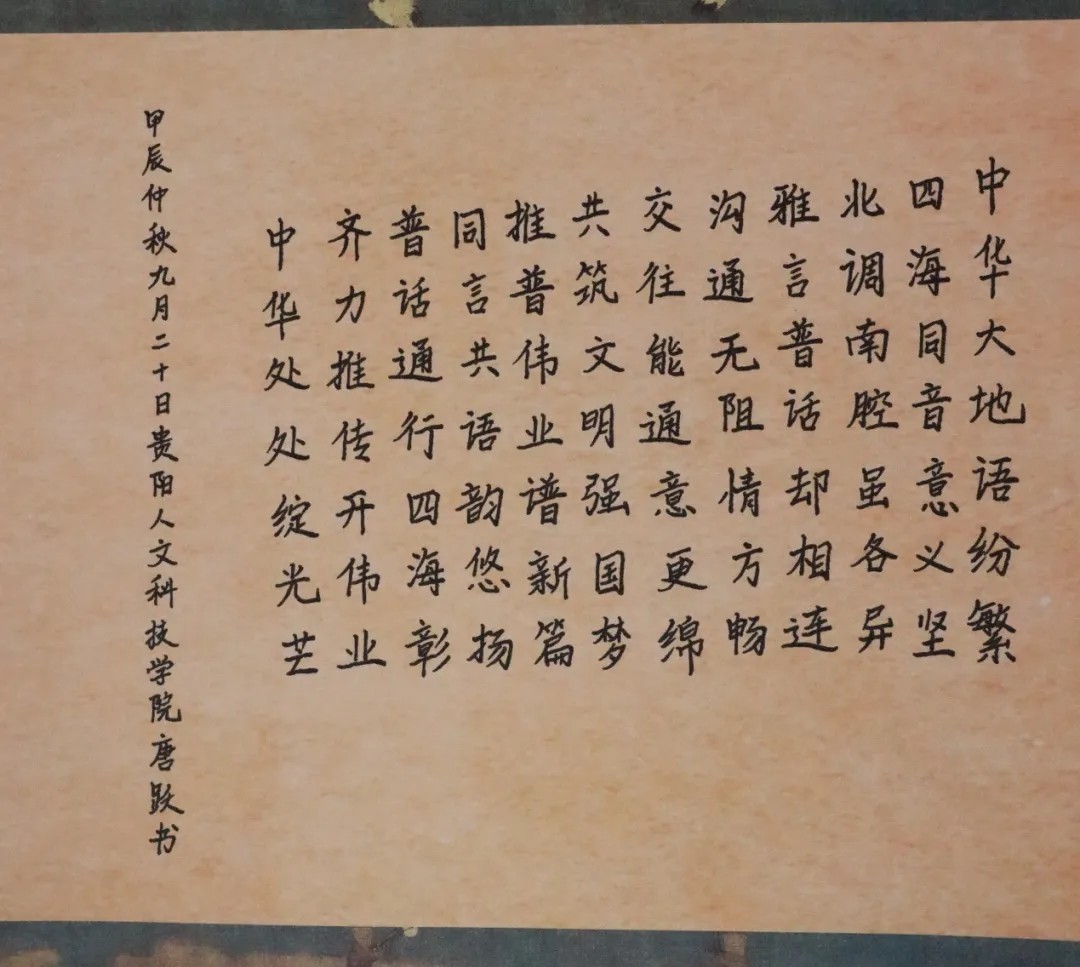 中华大地语纷繁
四海同音意义坚
北调南腔虽各异
雅言普话却相连
沟通无阻情方畅
交往能通意更绵
共筑文明强国梦
推普伟业谱新篇
同言共语韵悠扬
普话通行四海彰
齐力推传开伟业
中华处处绽光芒
甲辰仲秋九月二十日贵阳人文科技学院唐跃书